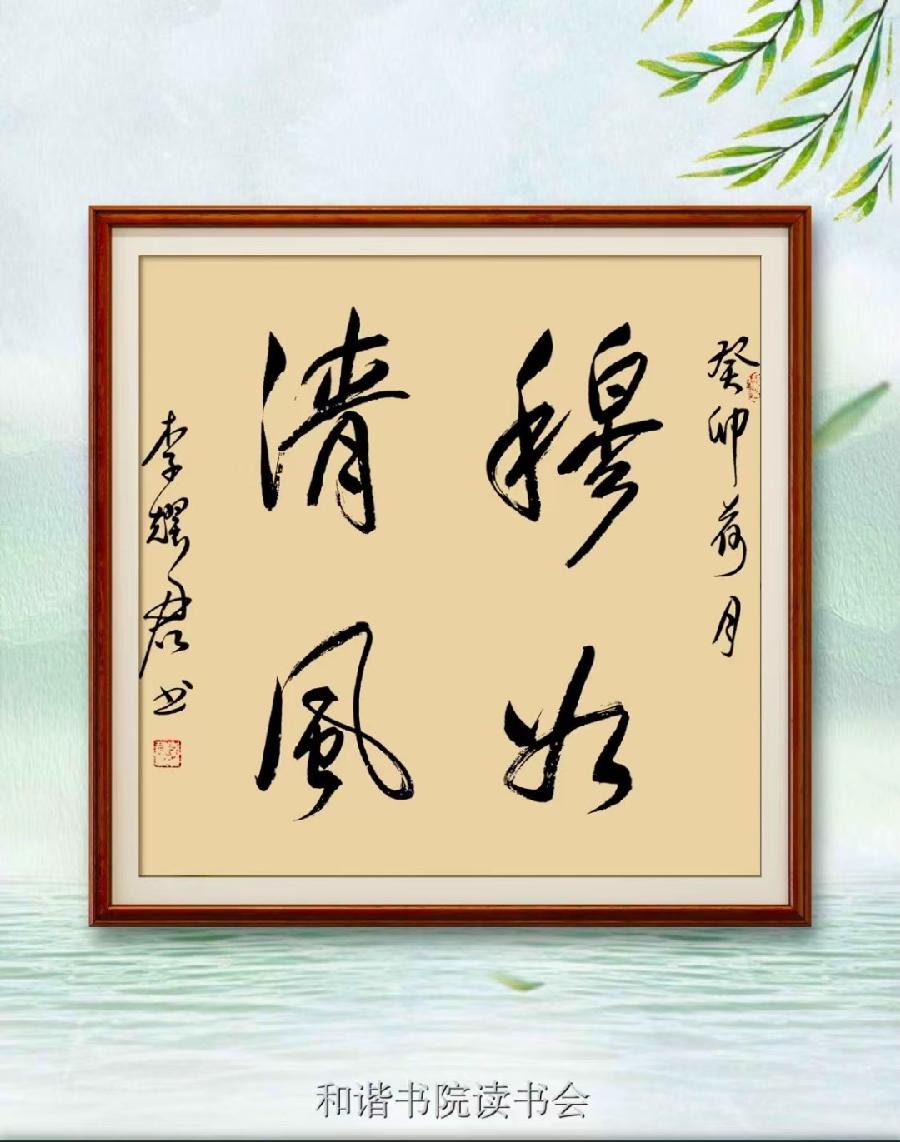 癸卯荷月
穆如
清風
李耀君书
和谐书院读书会